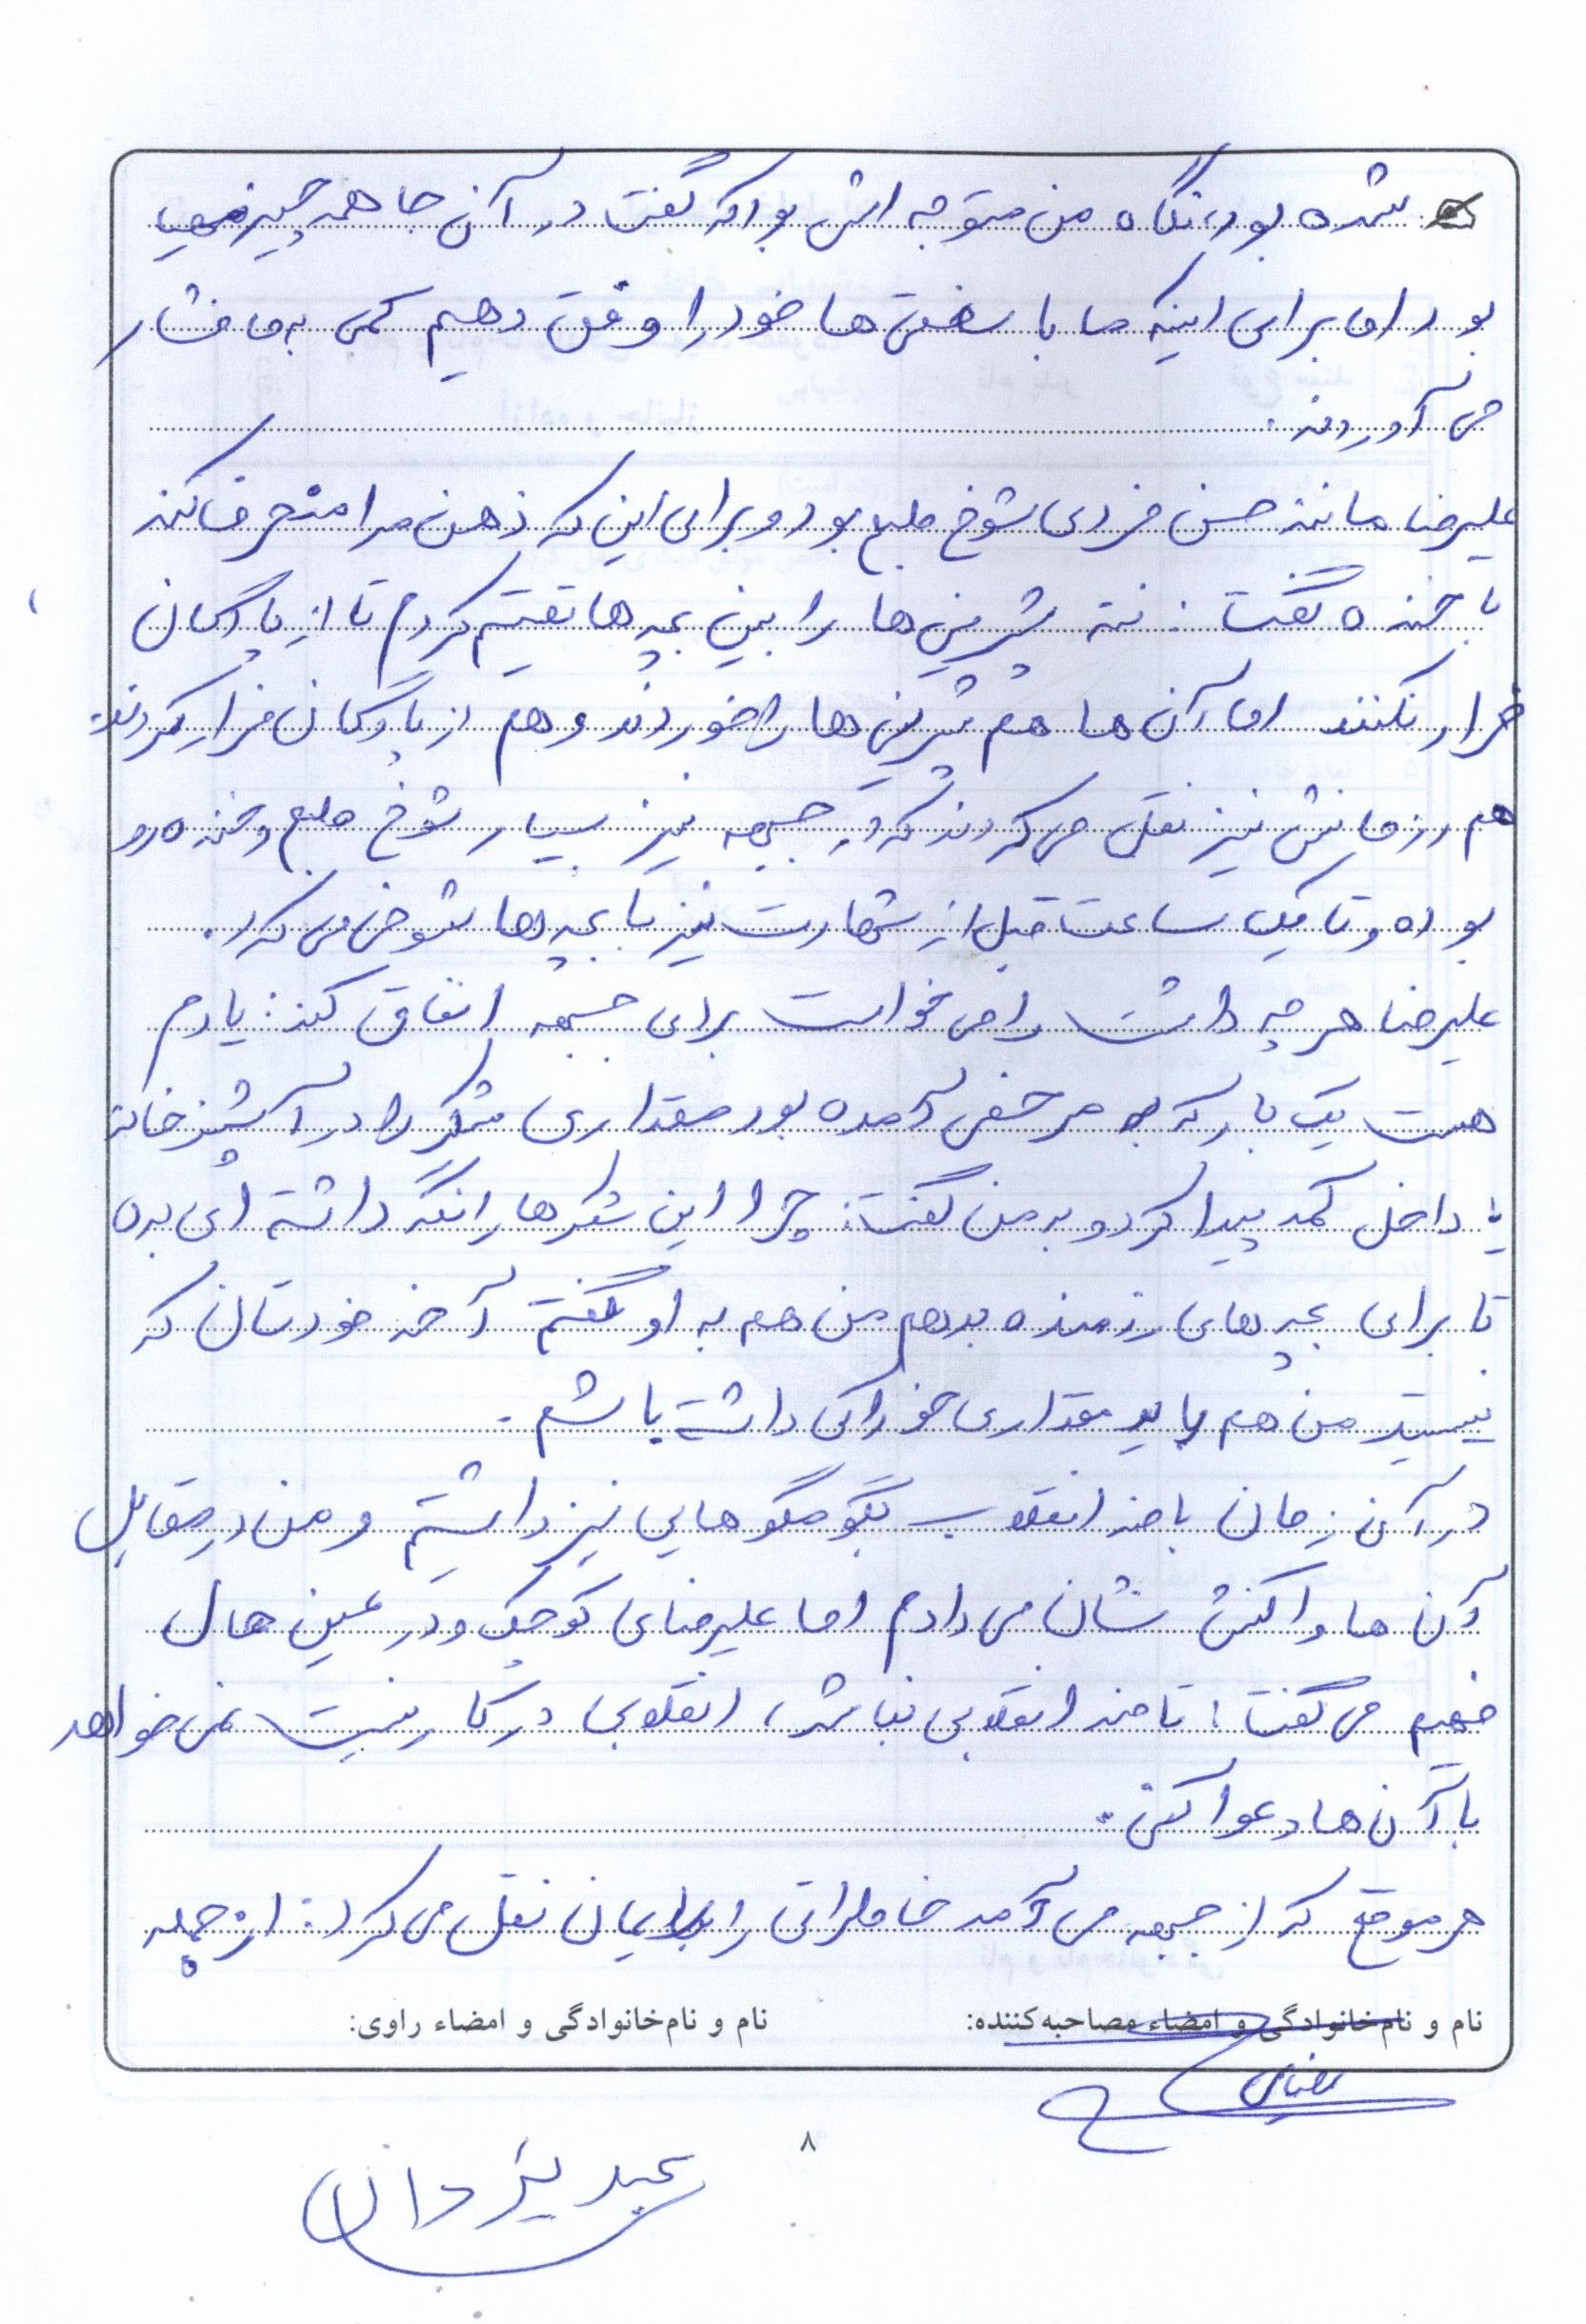 شده بود، نگاه من متوجه اش بود که گفت در آن جا همه چیز مهیا
بود اما برای اینکه ما با سختی ها خود را وفق دهیم کمی به ما فشار
می آوردند.
علیرضا مانند حسن فردی شوخ طبع بود و برای این که ذهن مرا منحرف کند
با خنده گفت: ننه شیرینی ها را بین بچه ها تقسیم کردم تا از پادگان
فرار نکنند اما آن ها هم شیرینی ها را خوردند و هم از پادگان فرار کردند.
هم رزمانش نیز نقل می کردند که در جبهه نیز بسیار شوخ طبع و خنده رو
بوده و تا یک ساعت قبل از شهادت نیز با بچه ها شوخی می کرد.
علیرضا هر چه داشت را می خواست برای جبهه انفاق کند: یادم
هست یک بار که به مرخصی آمده بود مقداری شکر را در آشپزخانه
داخل کمد پیدا کرد و به من گفت: چرا این شکرها را نگه داشته ای بده
تا برای بچه های رزمنده ببرم من هم به او گفتم آخه خودتان که
نیستید من هم باید مقداری خوراکی داشته باشم.
در آن زمان با ضد انقلاب بگو مگو هایی نیز داشتم و من در مقابل
آن ها واکنش نشان می دادم اما علیرضای کوچک و در عین حال
فهیم می گفت: تا ضد انقلابی نباشد، انقلابی در کار نیست نمی خواهد
با آن ها دعوا کنی.
هر موقع که از جبهه می آمد خاطراتی را برایمان نقل می کرد: از جمله
نام و نام‌خانوادگی و امضاء مصاحبه‌کننده:
نام و نام‌خانوادگی و امضاء راوی:
۸